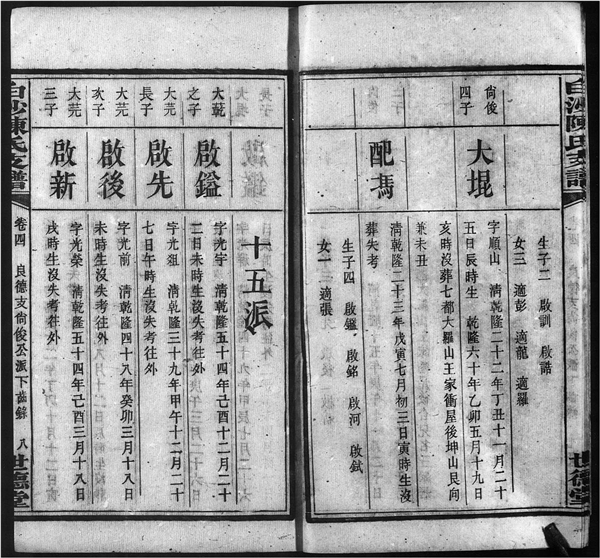 白沙陳氏支譜
生子二 啟訓 啟誥
女三 適彭 適龍 適羅
尚俊
四子
大堒
字順山 清乾隆二十二年丁丑十一月二十
五日辰時生 乾隆六十年乙卯五月十九日
亥時沒葬七都大羅山王家衝屋後坤山艮向
兼未丑
配馮
清乾隆二十三年戊寅七月初三日寅時生沒
葬失考
生子四 啟鑑 啟銘 啟河 啟弑
女一 適張
世德堂
十五派
大蒝
之子
啟鎰
字光宇 清乾隆五十四年己酉十二月二十
二日未時生沒失考往外
大芫
長子
啟先
字光祖 清乾隆三十九年甲午十二月二十
七日午時生沒失考往外
大芫
次子
啟後
字光前 清乾隆四十八年癸卯三月十八日
未時生沒失考往外
大芫
三子
啟新
字光榮 清乾隆五十四年己酉三月十八日
戌時生沒失考往外
白沙陳氏支譜
卷四 良德支尚俊公派下齒錄 八
世德堂